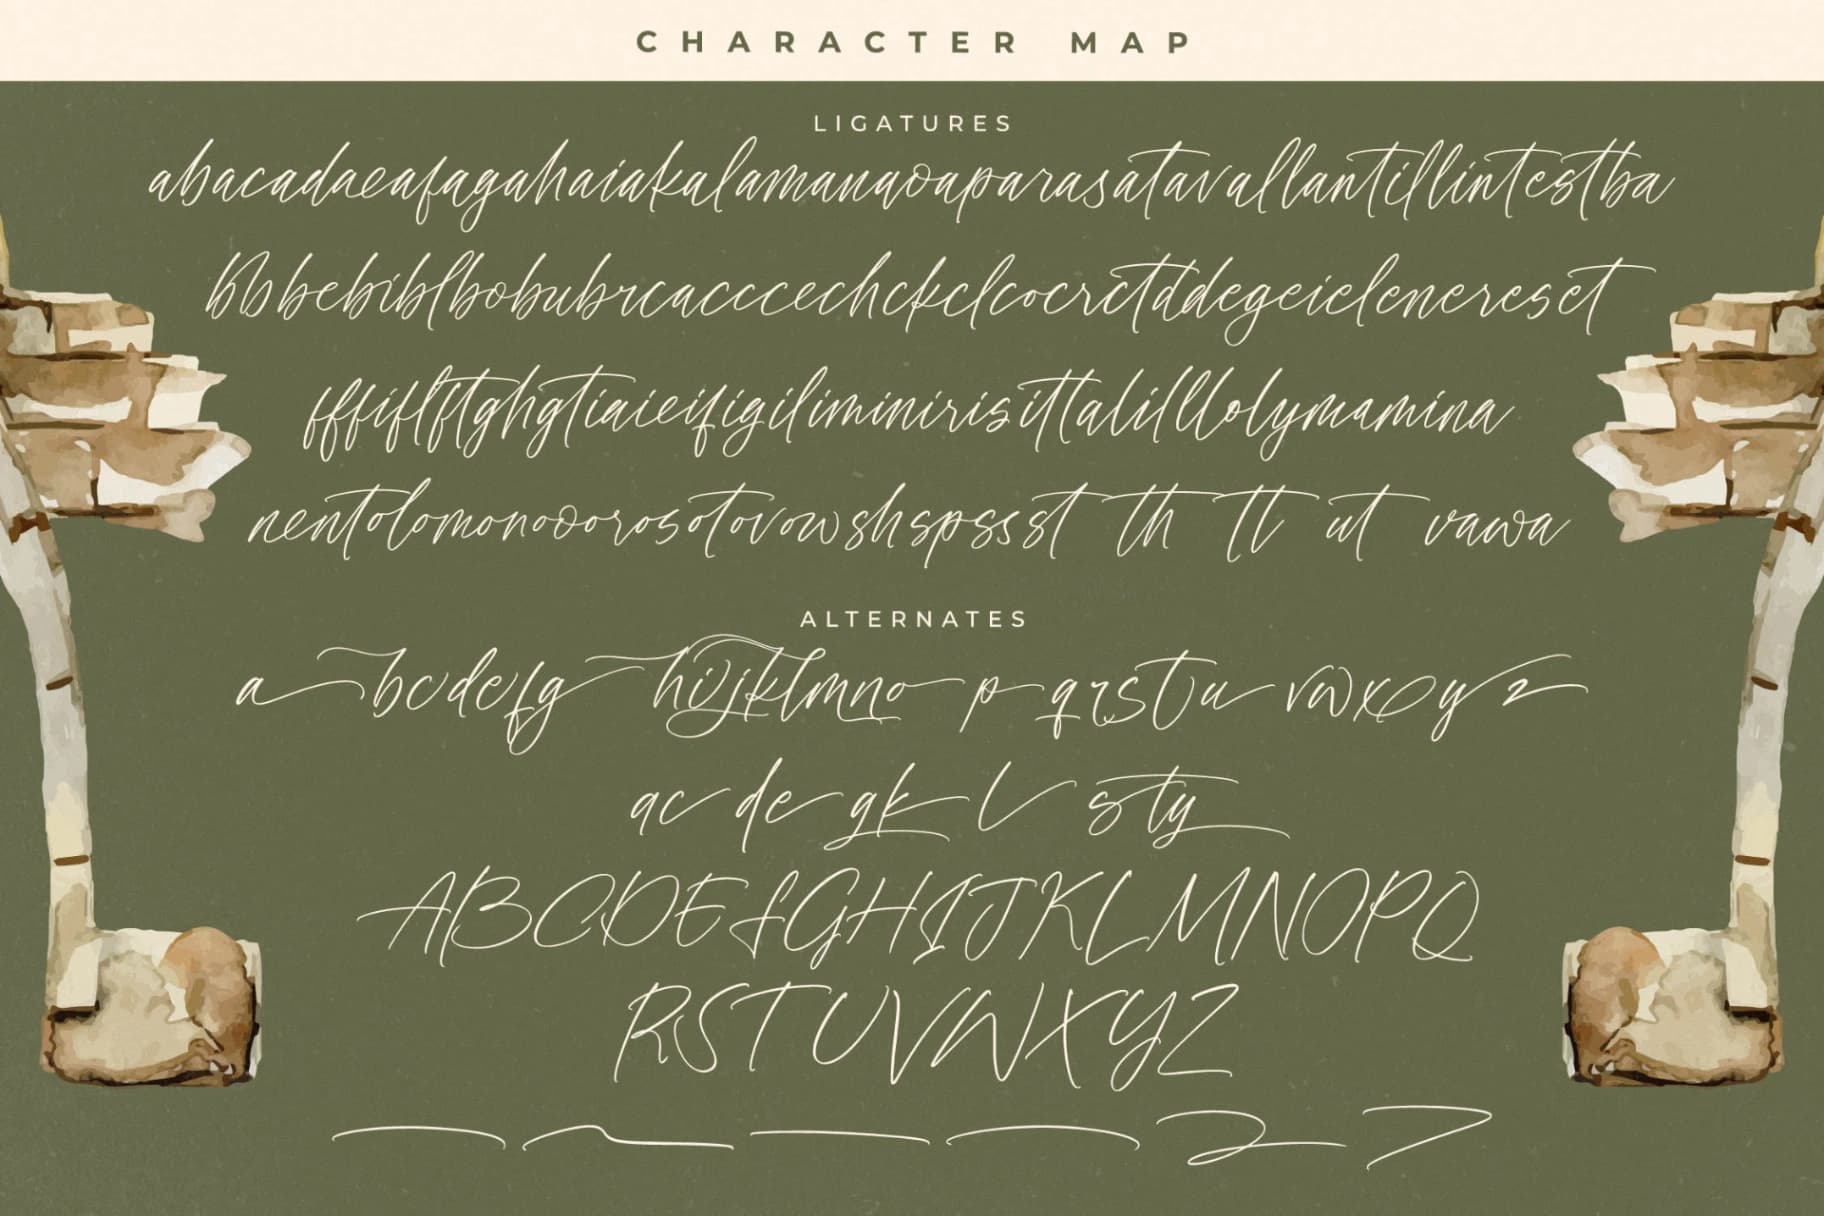 CHARACTER MAP
LIGATURES
abacadaeafagahaiakalamanaoaparasatavallantillintestba
bbbebiblbobubrcacccechckclcocrctddegeielenereset
fffiflftghgtiaieifigiliminirisittalilllolymamina
nentolomonooorosotovowshspssst th tt ut vawa
ALTERNATES
abcdefg hijklmno p qrstu vwxyz
ac de gk l sty
ABCDEFGHIJKLMNOPQ
RSTUVWXYZ